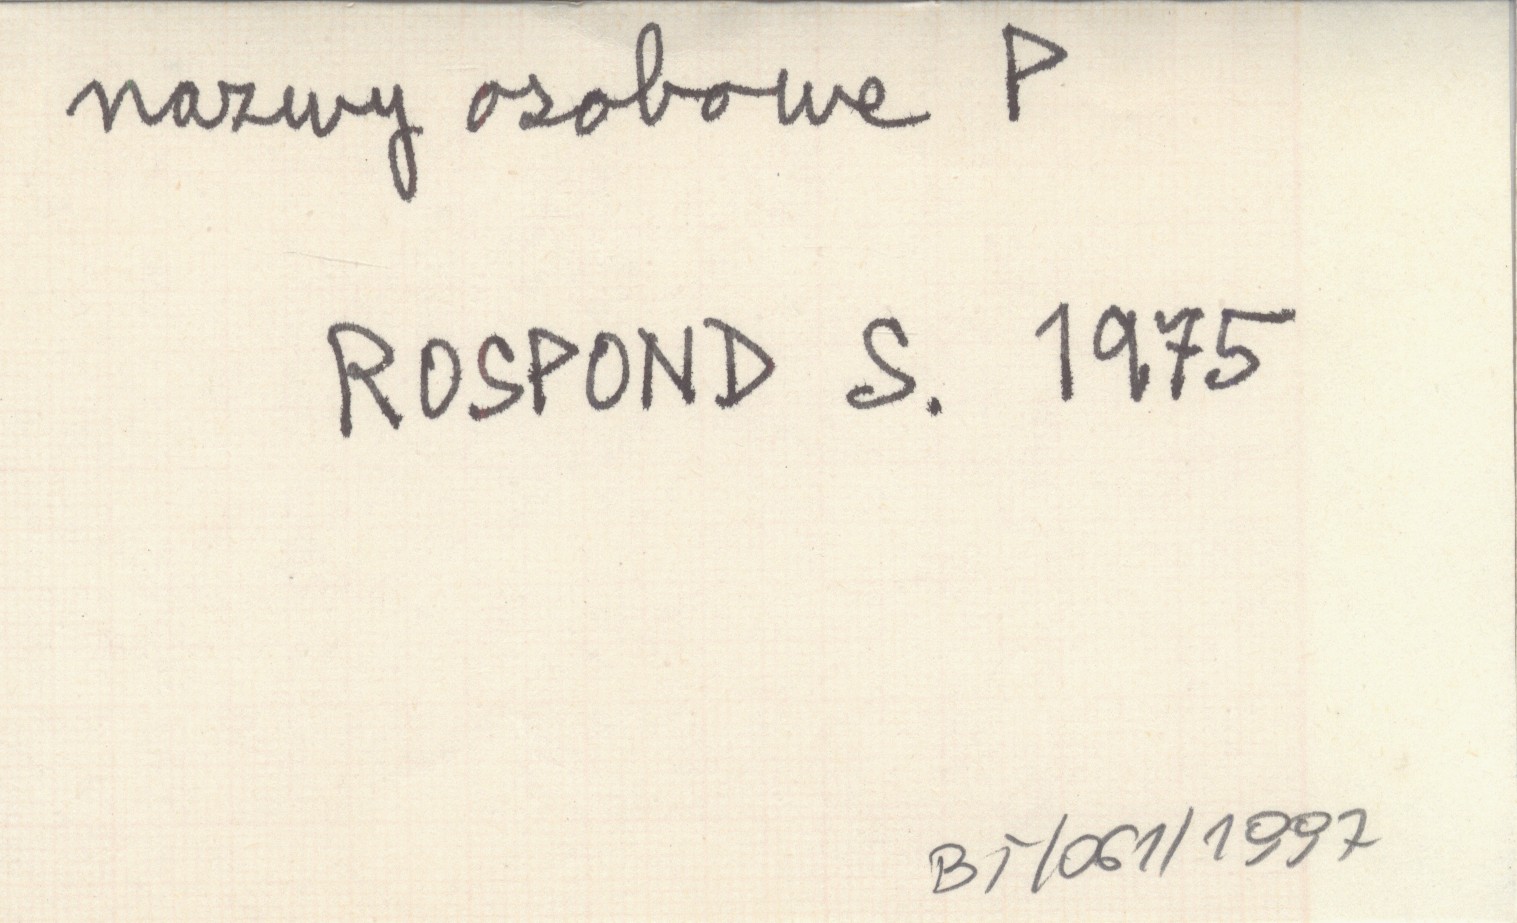 nazwy osobowe P
ROSPOND S. 1975
BI/061/1997